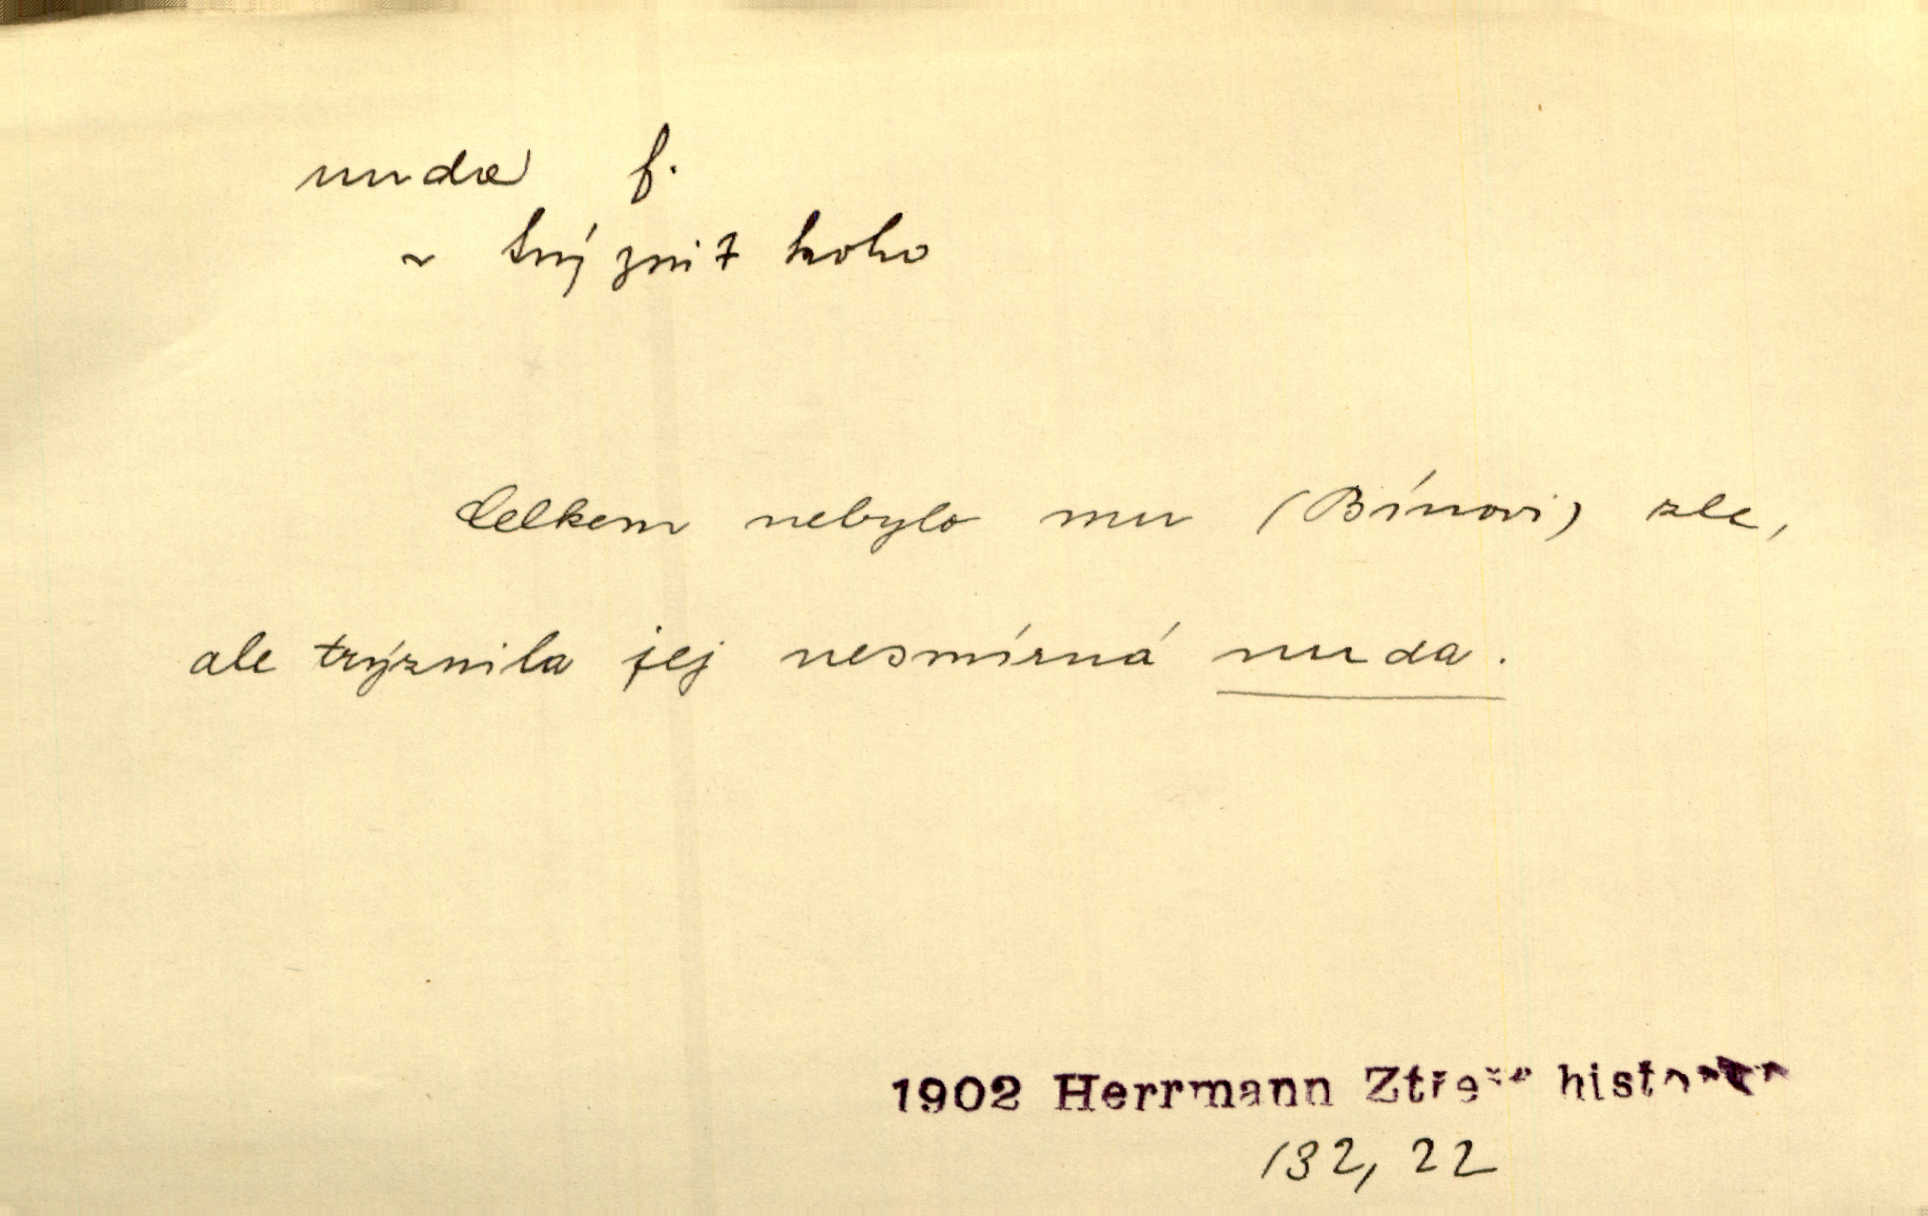 nuda f.
~ trýznit koho
Celkem nebylo mu (Bínovi) zle,
ale trýznila jej nesmírná nuda.
1902 Herrmann
132, 22